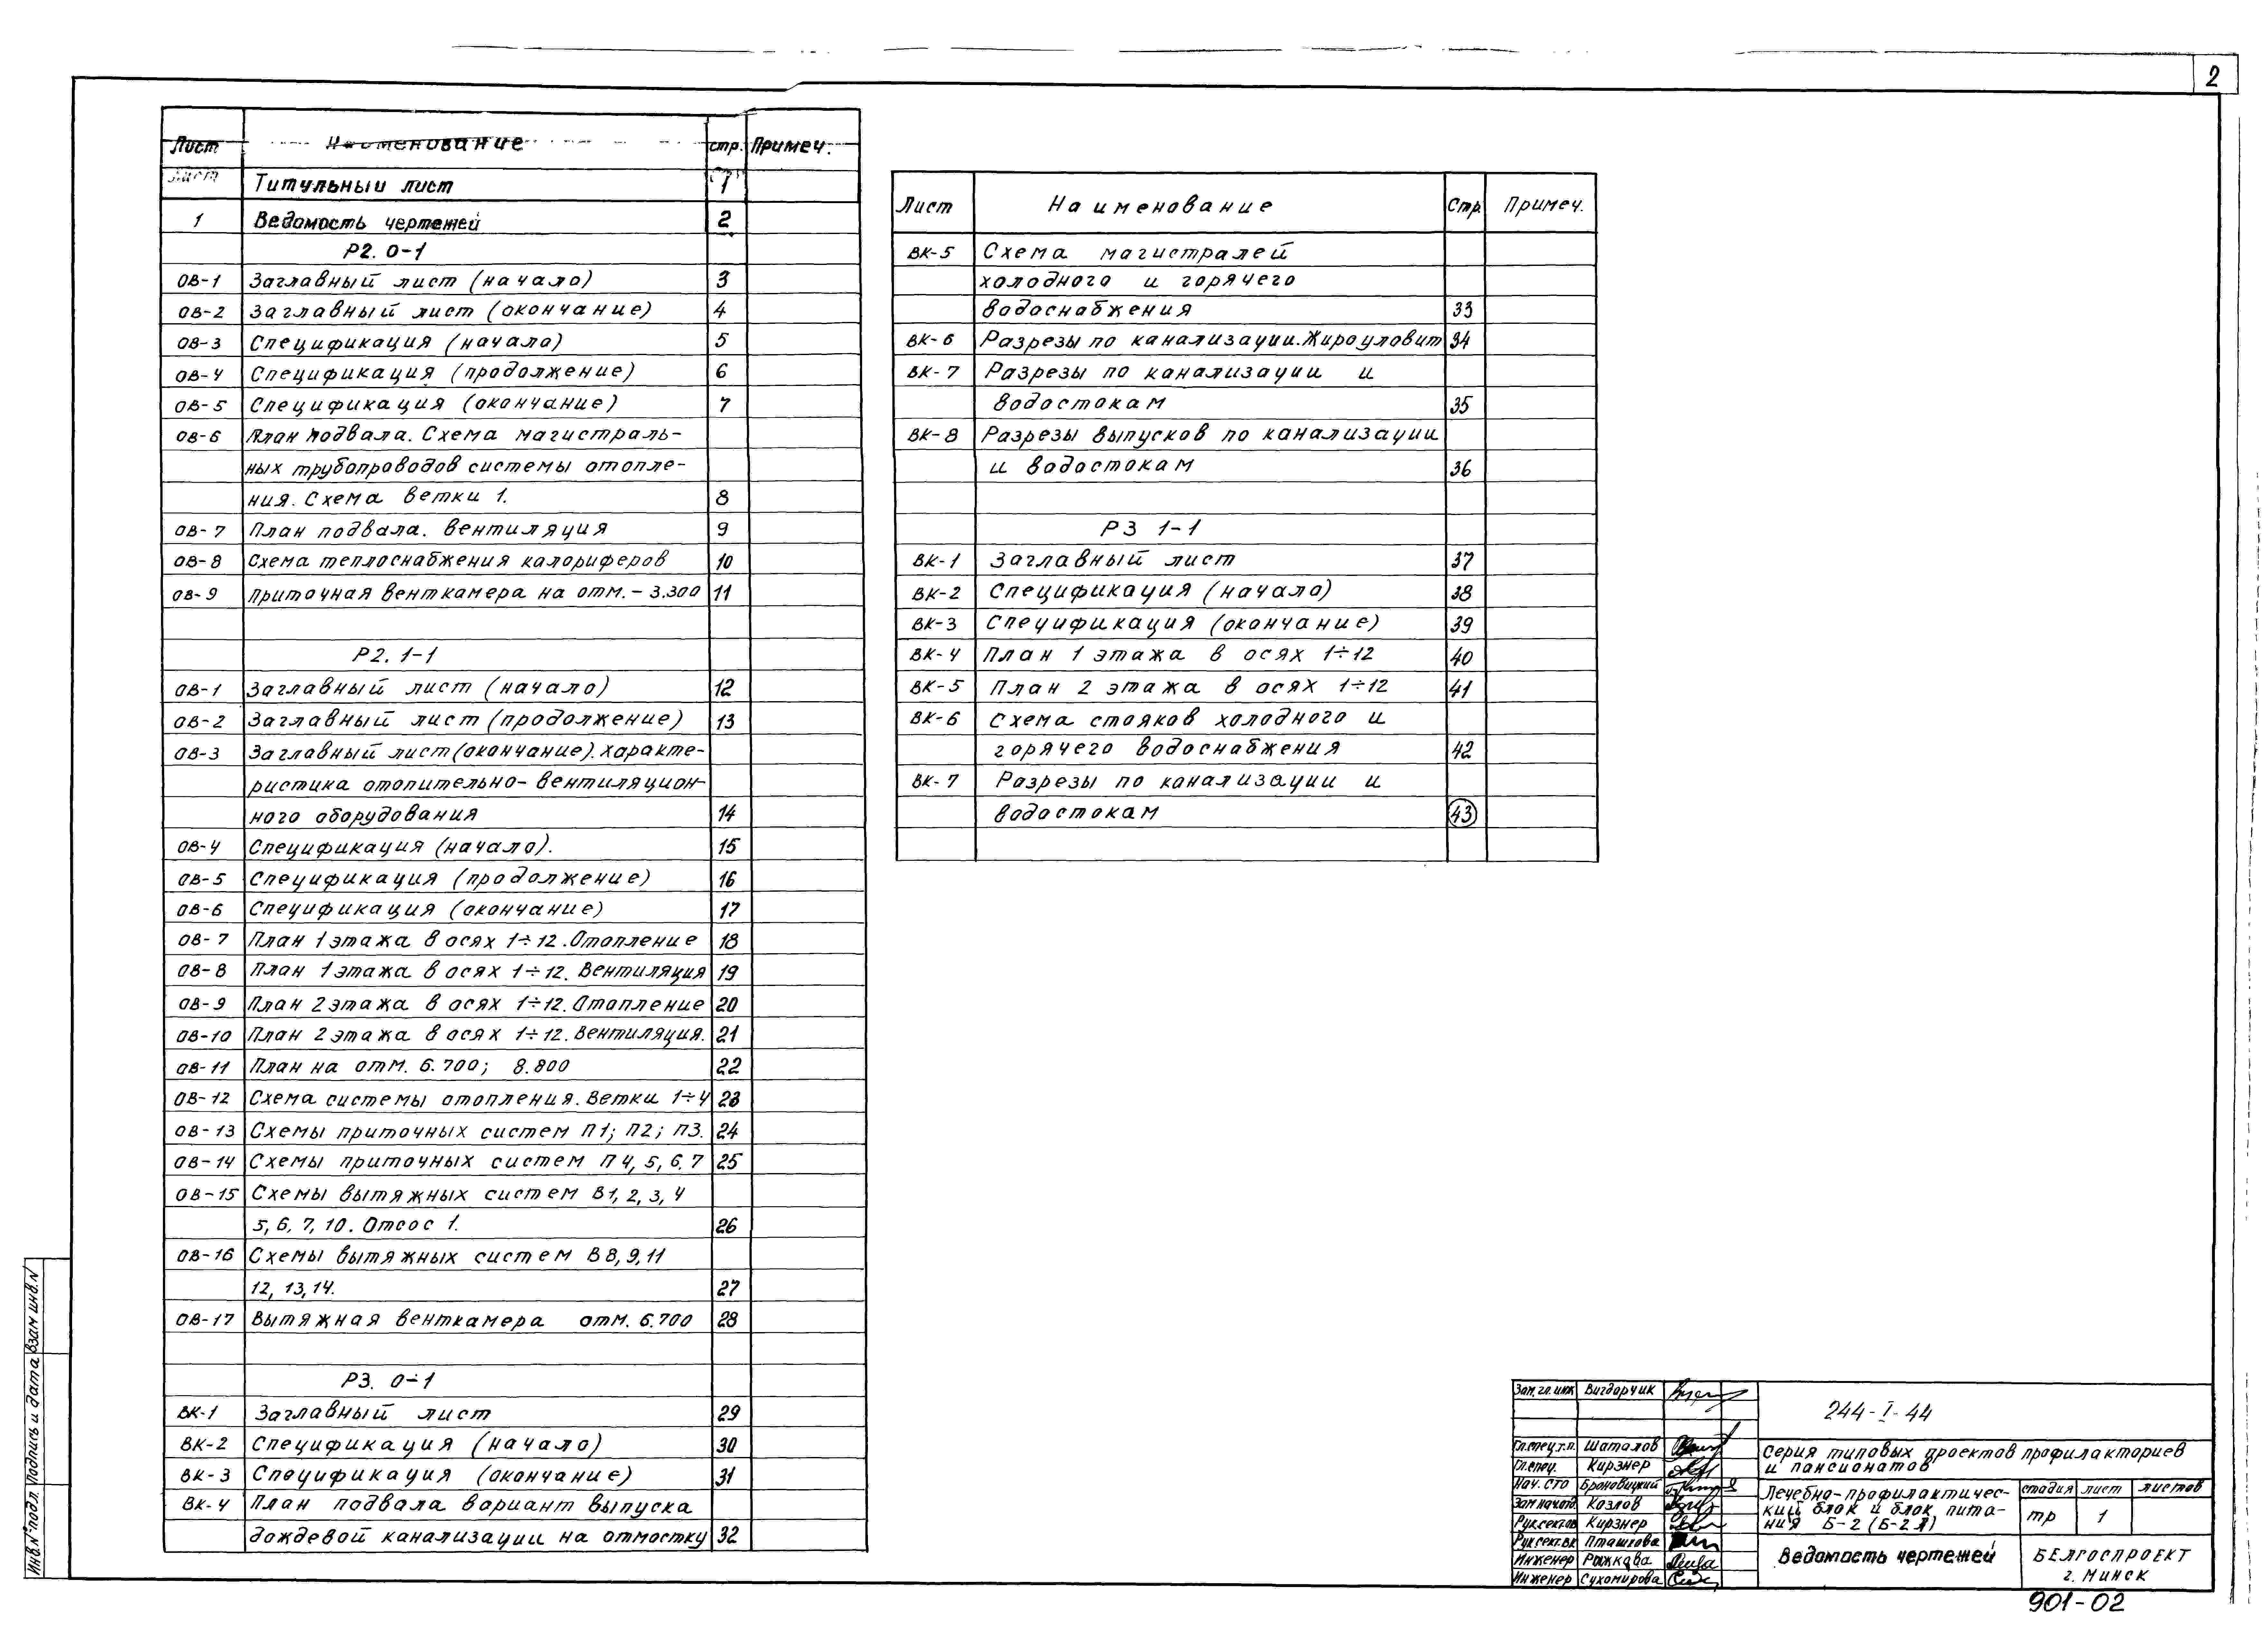 2
Лист Наименование стр. Примеч.
Лист Титульный лист 1
1 Ведомость чертежей 2
Р2. 0-1
ОВ-1 Заглавный лист (начало) 3
ОВ-2 Заглавный лист (окончание) 4
ОВ-3 Спецификация (начало) 5
ОВ-4 Спецификация (продолжение) 6
ОВ-5 Спецификация (окончание) 7
ОВ-6 План подвала. Схема магистраль-
ных трубопроводов системы отопле-
ния. Схема ветки 1. 8
ОВ-7 План подвала. Вентиляция 9
ОВ-8 Схема теплоснабжения калориферов 10
ОВ-9 Приточная венткамера на отм. -3.300 11
Р2. 1-1
ОВ-1 Заглавный лист (начало) 12
ОВ-2 Заглавный лист (продолжение) 13
ОВ-3 Заглавный лист (окончание). Характе-
ристика отопительно-вентиляцион-
ного оборудования 14
ОВ-4 Спецификация (начало). 15
ОВ-5 Спецификация (продолжение) 16
ОВ-6 Спецификация (окончание) 17
ОВ-7 План 1 этажа в осях 1÷12. Отопление 18
ОВ-8 План 1 этажа в осях 1÷12. Вентиляция 19
ОВ-9 План 2 этажа в осях 1÷12. Отопление 20
ОВ-10 План 2 этажа в осях 1÷12. Вентиляция. 21
ОВ-11 План на отм. 6.700; 8.800 22
ОВ-12 Схема системы отопления. Ветки 1÷4 23
ОВ-13 Схемы приточных систем П1; П2; П3. 24
ОВ-14 Схемы приточных систем П4, 5, 6, 7 25
ОВ-15 Схемы вытяжных систем В1, 2, 3, 4
5, 6, 7, 10. Отсос 1. 26
ОВ-16 Схемы вытяжных систем В8, 9, 11
12, 13, 14. 27
ОВ-17 Вытяжная венткамера отм. 6.700 28
Р3. 0-1
ВК-1 Заглавный лист 29
ВК-2 Спецификация (начало) 30
ВК-3 Спецификация (окончание) 31
ВК-4 План подвала вариант выпуска
дождевой канализации на отмостку 32
Лист Наименование Стр. Примеч.
ВК-5 Схема магистралей
холодного и горячего
водоснабжения 33
ВК-6 Разрезы по канализации. Жироуловит 34
ВК-7 Разрезы по канализации и
водостокам 35
ВК-8 Разрезы выпусков по канализации
и водостокам 36
Р3 1-1
ВК-1 Заглавный лист 37
ВК-2 Спецификация (начало) 38
ВК-3 Спецификация (окончание) 39
ВК-4 План 1 этажа в осях 1÷12 40
ВК-5 План 2 этажа в осях 1÷12 41
ВК-6 Схема стояков холодного и
горячего водоснабжения 42
ВК-7 Разрезы по канализации и
водостокам 43
Инв.№ подл. Подпись и дата Взам инв.N
Зам.гл.инж Вигдорчик
Гл.спец.т.п. Шаталов
Гл.спец. Кирзнер
Нач. СТО Броновицкий
Зам нач.отд. Козлов
Рук.сект.ов Кирзнер
Рук.сект.вк Пташкова
Инженер Рыжкова
Инженер Сухомирова
244-I-44
Серия типовых проектов профилакториев
и пансионатов
Лечебно-профилактичес-
кий блок и блок пита-
ния Б-2 (Б-2Л)
стадия лист листов
тр 1
Ведомость чертежей
БЕЛГОСПРОЕКТ
г. МИНСК
901-02